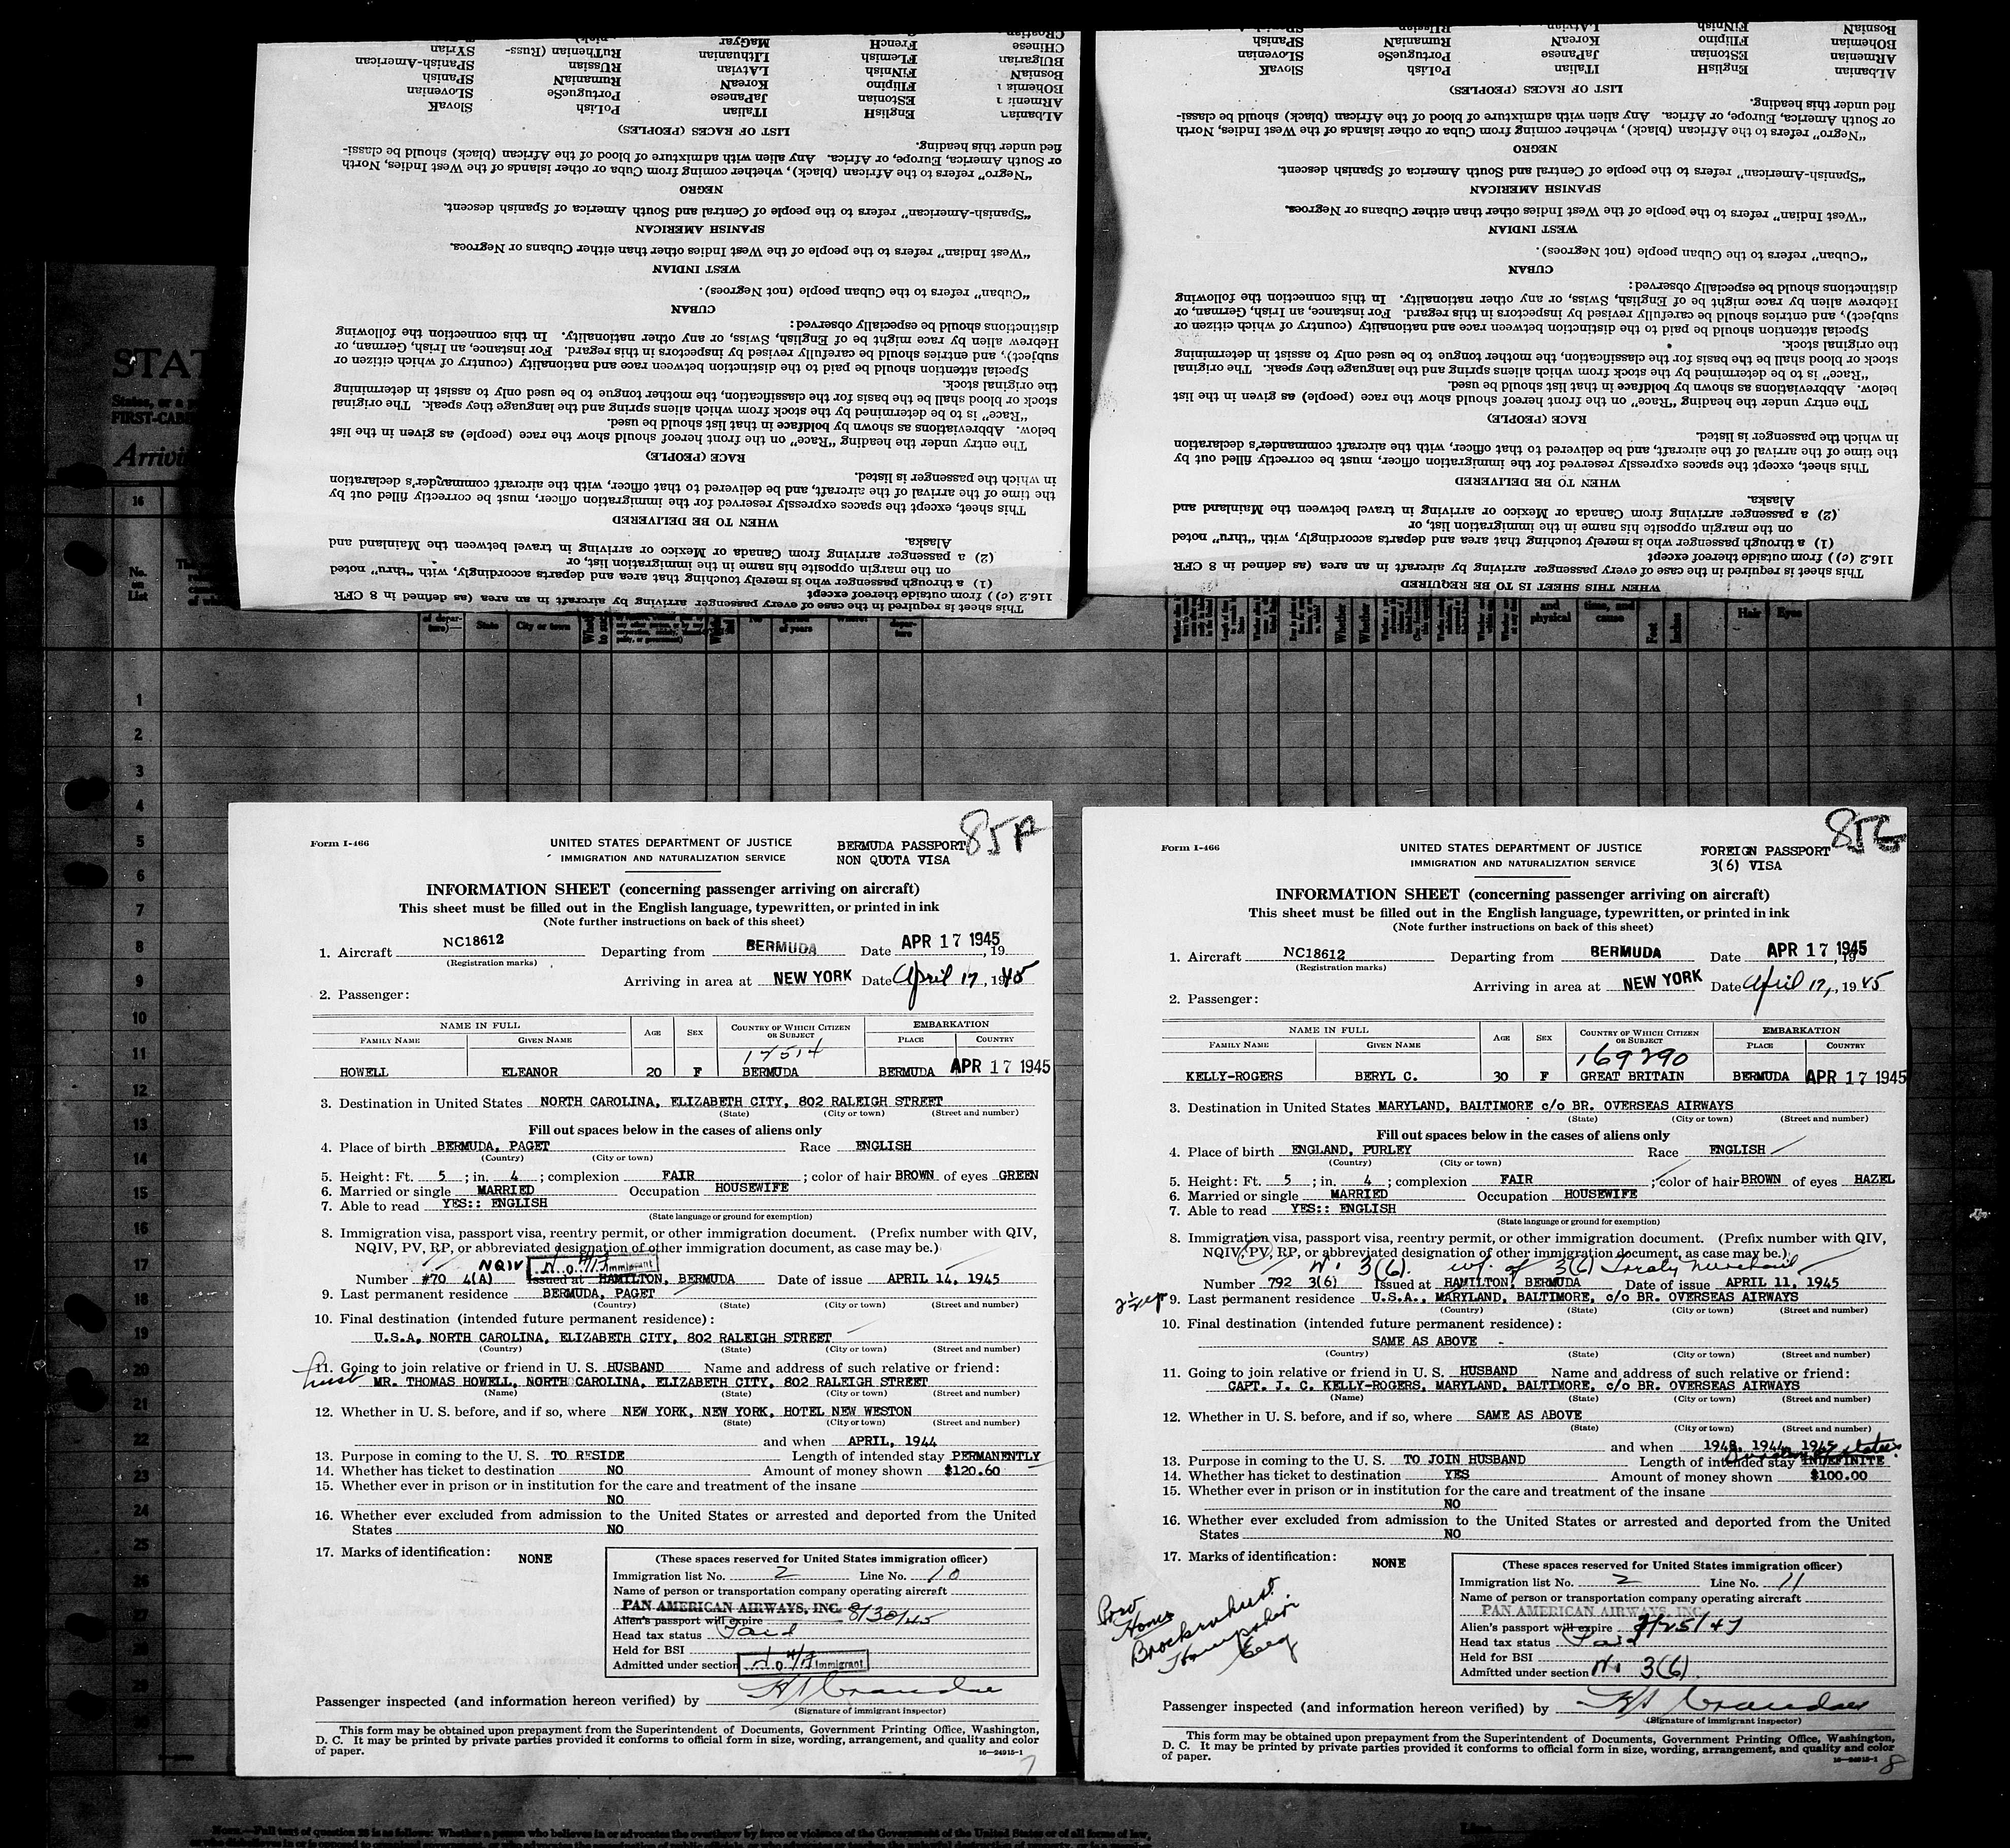 STAT
States, or a
FIRST-CAB
Arrivi
16
No.
on
List
SlovaK
SLOVenian
SPanish
SPanish-American
SYrian
PoLish
PortuguesE
RumaniaN
RUssian
RuTheniaN (Russ-
ITalian
JaPanese
KoreaN
LAtvian
LIthuanian
MaGyar
EnglisH
EStonian
FIlipino
FiNnish
FLemish
FrencH
BOsniaN
BUlgarian
CHinese
LIST OF RACES (PEOPLES)
fied under this heading.
or South America, Europe, or Africa. Any alien with admixture of blood of the African (black) should be classi-
"Negro" refers to the African (black), whether coming from Cuba or other islands of the West Indies, North
NEGRO
"Spanish-American" refers to the people of Central and South America of Spanish descent.
SPANISH AMERICAN
"West Indian" refers to the people of the West Indies other than either Cubans or Negroes.
WEST INDIAN
"Cuban" refers to the Cuban people (not Negroes).
CUBAN
distinctions should be especially observed:
Hebrew alien by race might be of English, Swiss, or any other nationality. In this connection the following
subject), and entries should be carefully revised by inspectors in this regard. For instance, an Irish, German, or
Special attention should be paid to the distinction between race and nationality (country of which citizen or
the original stock.
stock or blood shall be the basis for the classification, the mother tongue to be used only to assist in determining
"Race" is to be determined by the stock from which aliens spring and the language they speak. The original
below. Abbreviations as shown by boldface in that list should be used.
The entry under the heading "Race" on the front hereof should show the race (people) as given in the list
RACE (PEOPLE)
in which the passenger is listed.
the time of the arrival of the aircraft, and be delivered to that officer, with the aircraft commander's declaration
This sheet, except the spaces expressly reserved for the immigration officer, must be correctly filled out by
WHEN TO BE DELIVERED
Alaska.
(2) a passenger arriving from Canada or Mexico or arriving in travel between the Mainland and
on the margin opposite his name in the immigration list, or
(1) a through passenger who is merely touching that area and departs accordingly, with "thru" noted
116.2 (c)) from outside thereof except
This sheet is required in the case of every passenger arriving by aircraft in an area (as defined in 8 CFR
ALbanian EnglisH ITalian PoLish SlovaK
ARmenian EStonian JaPanese PortuguesE SLOVenian
BOhemian FIlipino KoreaN RumaniaN SPanish
LIST OF RACES (PEOPLES)
fied under this heading.
or South America, Europe, or Africa. Any alien with admixture of blood of the African (black) should be classi-
"Negro" refers to the African (black), whether coming from Cuba or other islands of the West Indies, North
NEGRO
"Spanish-American" refers to the people of Central and South America of Spanish descent.
SPANISH AMERICAN
"West Indian" refers to the people of the West Indies other than either Cubans or Negroes.
WEST INDIAN
"Cuban" refers to the Cuban people (not Negroes).
CUBAN
distinctions should be especially observed:
Hebrew alien by race might be of English, Swiss, or any other nationality. In this connection the following
subject), and entries should be carefully revised by inspectors in this regard. For instance, an Irish, German, or
Special attention should be paid to the distinction between race and nationality (country of which citizen or
the original stock.
stock or blood shall be the basis for the classification, the mother tongue to be used only to assist in determining
"Race" is to be determined by the stock from which aliens spring and the language they speak. The original
below. Abbreviations as shown by boldface in that list should be used.
The entry under the heading "Race" on the front hereof should show the race (people) as given in the list
RACE (PEOPLE)
in which the passenger is listed.
the time of the arrival of the aircraft, and be delivered to that officer, with the aircraft commander's declaration
This sheet, except the spaces expressly reserved for the immigration officer, must be correctly filled out by
WHEN TO BE DELIVERED
Alaska.
(2) a passenger arriving from Canada or Mexico or arriving in travel between the Mainland and
on the margin opposite his name in the immigration list, or
(1) a through passenger who is merely touching that area and departs accordingly, with "thru" noted
116.2 (c)) from outside thereof except
This sheet is required in the case of every passenger arriving by aircraft in an area (as defined in 8 CFR
WHEN THIS SHEET IS TO BE REQUIRED
State City or town of years and physical time, and cause Feet Inches Hair Eyes
1
2
3
4
5
6
7
8
9
10
11
12
13
14
15
16
17
18
19
20
21
22
23
24
25
26
27
28
29
Form I-466
UNITED STATES DEPARTMENT OF JUSTICE
IMMIGRATION AND NATURALIZATION SERVICE
BERMUDA PASSPORT
NON QUOTA VISA
85F
INFORMATION SHEET (concerning passenger arriving on aircraft)
This sheet must be filled out in the English language, typewritten, or printed in ink
(Note further instructions on back of this sheet)
1. Aircraft NC18612 Departing from BERMUDA Date APR 17 1945, 19
(Registration marks)
Arriving in area at NEW YORK Date April 17, 1945
2. Passenger:
NAME IN FULL AGE SEX COUNTRY OF WHICH CITIZEN OR SUBJECT EMBARKATION
FAMILY NAME GIVEN NAME PLACE COUNTRY
12514
HOWELL ELEANOR 20 F BERMUDA BERMUDA APR 17 1945
3. Destination in United States NORTH CAROLINA, ELIZABETH CITY, 802 RALEIGH STREET
(State) (City or town) (Street and number)
Fill out spaces below in the cases of aliens only
4. Place of birth BERMUDA, PAGET Race ENGLISH
(Country) (City or town)
5. Height: Ft. 5 ; in. 4 ; complexion FAIR ; color of hair BROWN of eyes GREEN
6. Married or single MARRIED Occupation HOUSEWIFE
7. Able to read YES:: ENGLISH
(State language or ground for exemption)
8. Immigration visa, passport visa, reentry permit, or other immigration document. (Prefix number with QIV,
NQIV, PV, RP, or abbreviated designation of other immigration document, as case may be.)
NQIV Immigrant
Number #70 4(A) Issued at HAMILTON, BERMUDA Date of issue APRIL 14, 1945
9. Last permanent residence BERMUDA, PAGET
(Country) (State) (City or town) (Street and number)
10. Final destination (intended future permanent residence):
U.S.A, NORTH CAROLINA, ELIZABETH CITY, 802 RALEIGH STREET
(Country) (State) (City or town) (Street and number)
11. Going to join relative or friend in U. S. HUSBAND Name and address of such relative or friend:
MR. THOMAS HOWELL, NORTH CAROLINA, ELIZABETH CITY, 802 RALEIGH STREET
(Name) (State) (City or town) (Street and number)
12. Whether in U. S. before, and if so, where NEW YORK, NEW YORK, HOTEL NEW WESTON
(State) (City or town) (Street and number)
and when APRIL, 1944
13. Purpose in coming to the U. S. TO RESIDE Length of intended stay PERMANENTLY
14. Whether has ticket to destination NO Amount of money shown $120.60
15. Whether ever in prison or in institution for the care and treatment of the insane
NO
16. Whether ever excluded from admission to the United States or arrested and deported from the United
States NO
17. Marks of identification: NONE
(These spaces reserved for United States immigration officer)
Immigration list No. 2 Line No. 10
Name of person or transportation company operating aircraft
PAN AMERICAN AIRWAYS, INC.
Alien's passport will expire 8/30/45
Head tax status Paid
Held for BSI
Admitted under section Immigrant
Passenger inspected (and information hereon verified) by
(Signature of immigrant inspector)
This form may be obtained upon prepayment from the Superintendent of Documents, Government Printing Office, Washington,
D. C. It may be printed by private parties provided it conforms to official form in size, wording, arrangement, and quality and color
of paper. 16—24915-1
7
Form I-466
UNITED STATES DEPARTMENT OF JUSTICE
IMMIGRATION AND NATURALIZATION SERVICE
FOREIGN PASSPORT
3(6) VISA
INFORMATION SHEET (concerning passenger arriving on aircraft)
This sheet must be filled out in the English language, typewritten, or printed in ink
(Note further instructions on back of this sheet)
1. Aircraft NC18612 Departing from BERMUDA Date APR 17 1945, 19
(Registration marks)
Arriving in area at NEW YORK Date April 17, 1945
2. Passenger:
NAME IN FULL AGE SEX COUNTRY OF WHICH CITIZEN OR SUBJECT EMBARKATION
FAMILY NAME GIVEN NAME PLACE COUNTRY
169290
KELLY-ROGERS BERYL C. 30 F GREAT BRITAIN BERMUDA APR 17 1945
3. Destination in United States MARYLAND, BALTIMORE c/o BR. OVERSEAS AIRWAYS
(State) (City or town) (Street and number)
Fill out spaces below in the cases of aliens only
4. Place of birth ENGLAND, PURLEY Race ENGLISH
(Country) (City or town)
5. Height: Ft. 5 ; in. 4 ; complexion FAIR ; color of hair BROWN of eyes HAZEL
6. Married or single MARRIED Occupation HOUSEWIFE
7. Able to read YES:: ENGLISH
(State language or ground for exemption)
8. Immigration visa, passport visa, reentry permit, or other immigration document. (Prefix number with QIV,
NQIV, PV, RP, or abbreviated designation of other immigration document, as case may be.)
3(6). wf. of 3(6) Treaty Merchant
Number 792 3(6) Issued at HAMILTON, BERMUDA Date of issue APRIL 11, 1945
9. Last permanent residence U.S.A., MARYLAND, BALTIMORE, c/o BR. OVERSEAS AIRWAYS
(Country) (State) (City or town) (Street and number)
10. Final destination (intended future permanent residence):
SAME AS ABOVE
(Country) (State) (City or town) (Street and number)
11. Going to join relative or friend in U. S. HUSBAND Name and address of such relative or friend:
CAPT. J. C. KELLY-ROGERS, MARYLAND, BALTIMORE, c/o BR. OVERSEAS AIRWAYS
(Name) (State) (City or town) (Street and number)
12. Whether in U. S. before, and if so, where SAME AS ABOVE
(State) (City or town) (Street and number)
and when 1943, 1944, 1945
13. Purpose in coming to the U. S. TO JOIN HUSBAND Length of intended stay INDEFINITE
14. Whether has ticket to destination YES Amount of money shown $100.00
15. Whether ever in prison or in institution for the care and treatment of the insane
NO
16. Whether ever excluded from admission to the United States or arrested and deported from the United
States NO
17. Marks of identification: NONE
(These spaces reserved for United States immigration officer)
Immigration list No. 2 Line No. 11
Name of person or transportation company operating aircraft
PAN AMERICAN AIRWAYS, INC.
Alien's passport will expire
Head tax status Paid
Held for BSI
Admitted under section 3(6).
Passenger inspected (and information hereon verified) by
(Signature of immigrant inspector)
This form may be obtained upon prepayment from the Superintendent of Documents, Government Printing Office, Washington,
D. C. It may be printed by private parties provided it conforms to official form in size, wording, arrangement, and quality and color
of paper. 16—24915-1
8